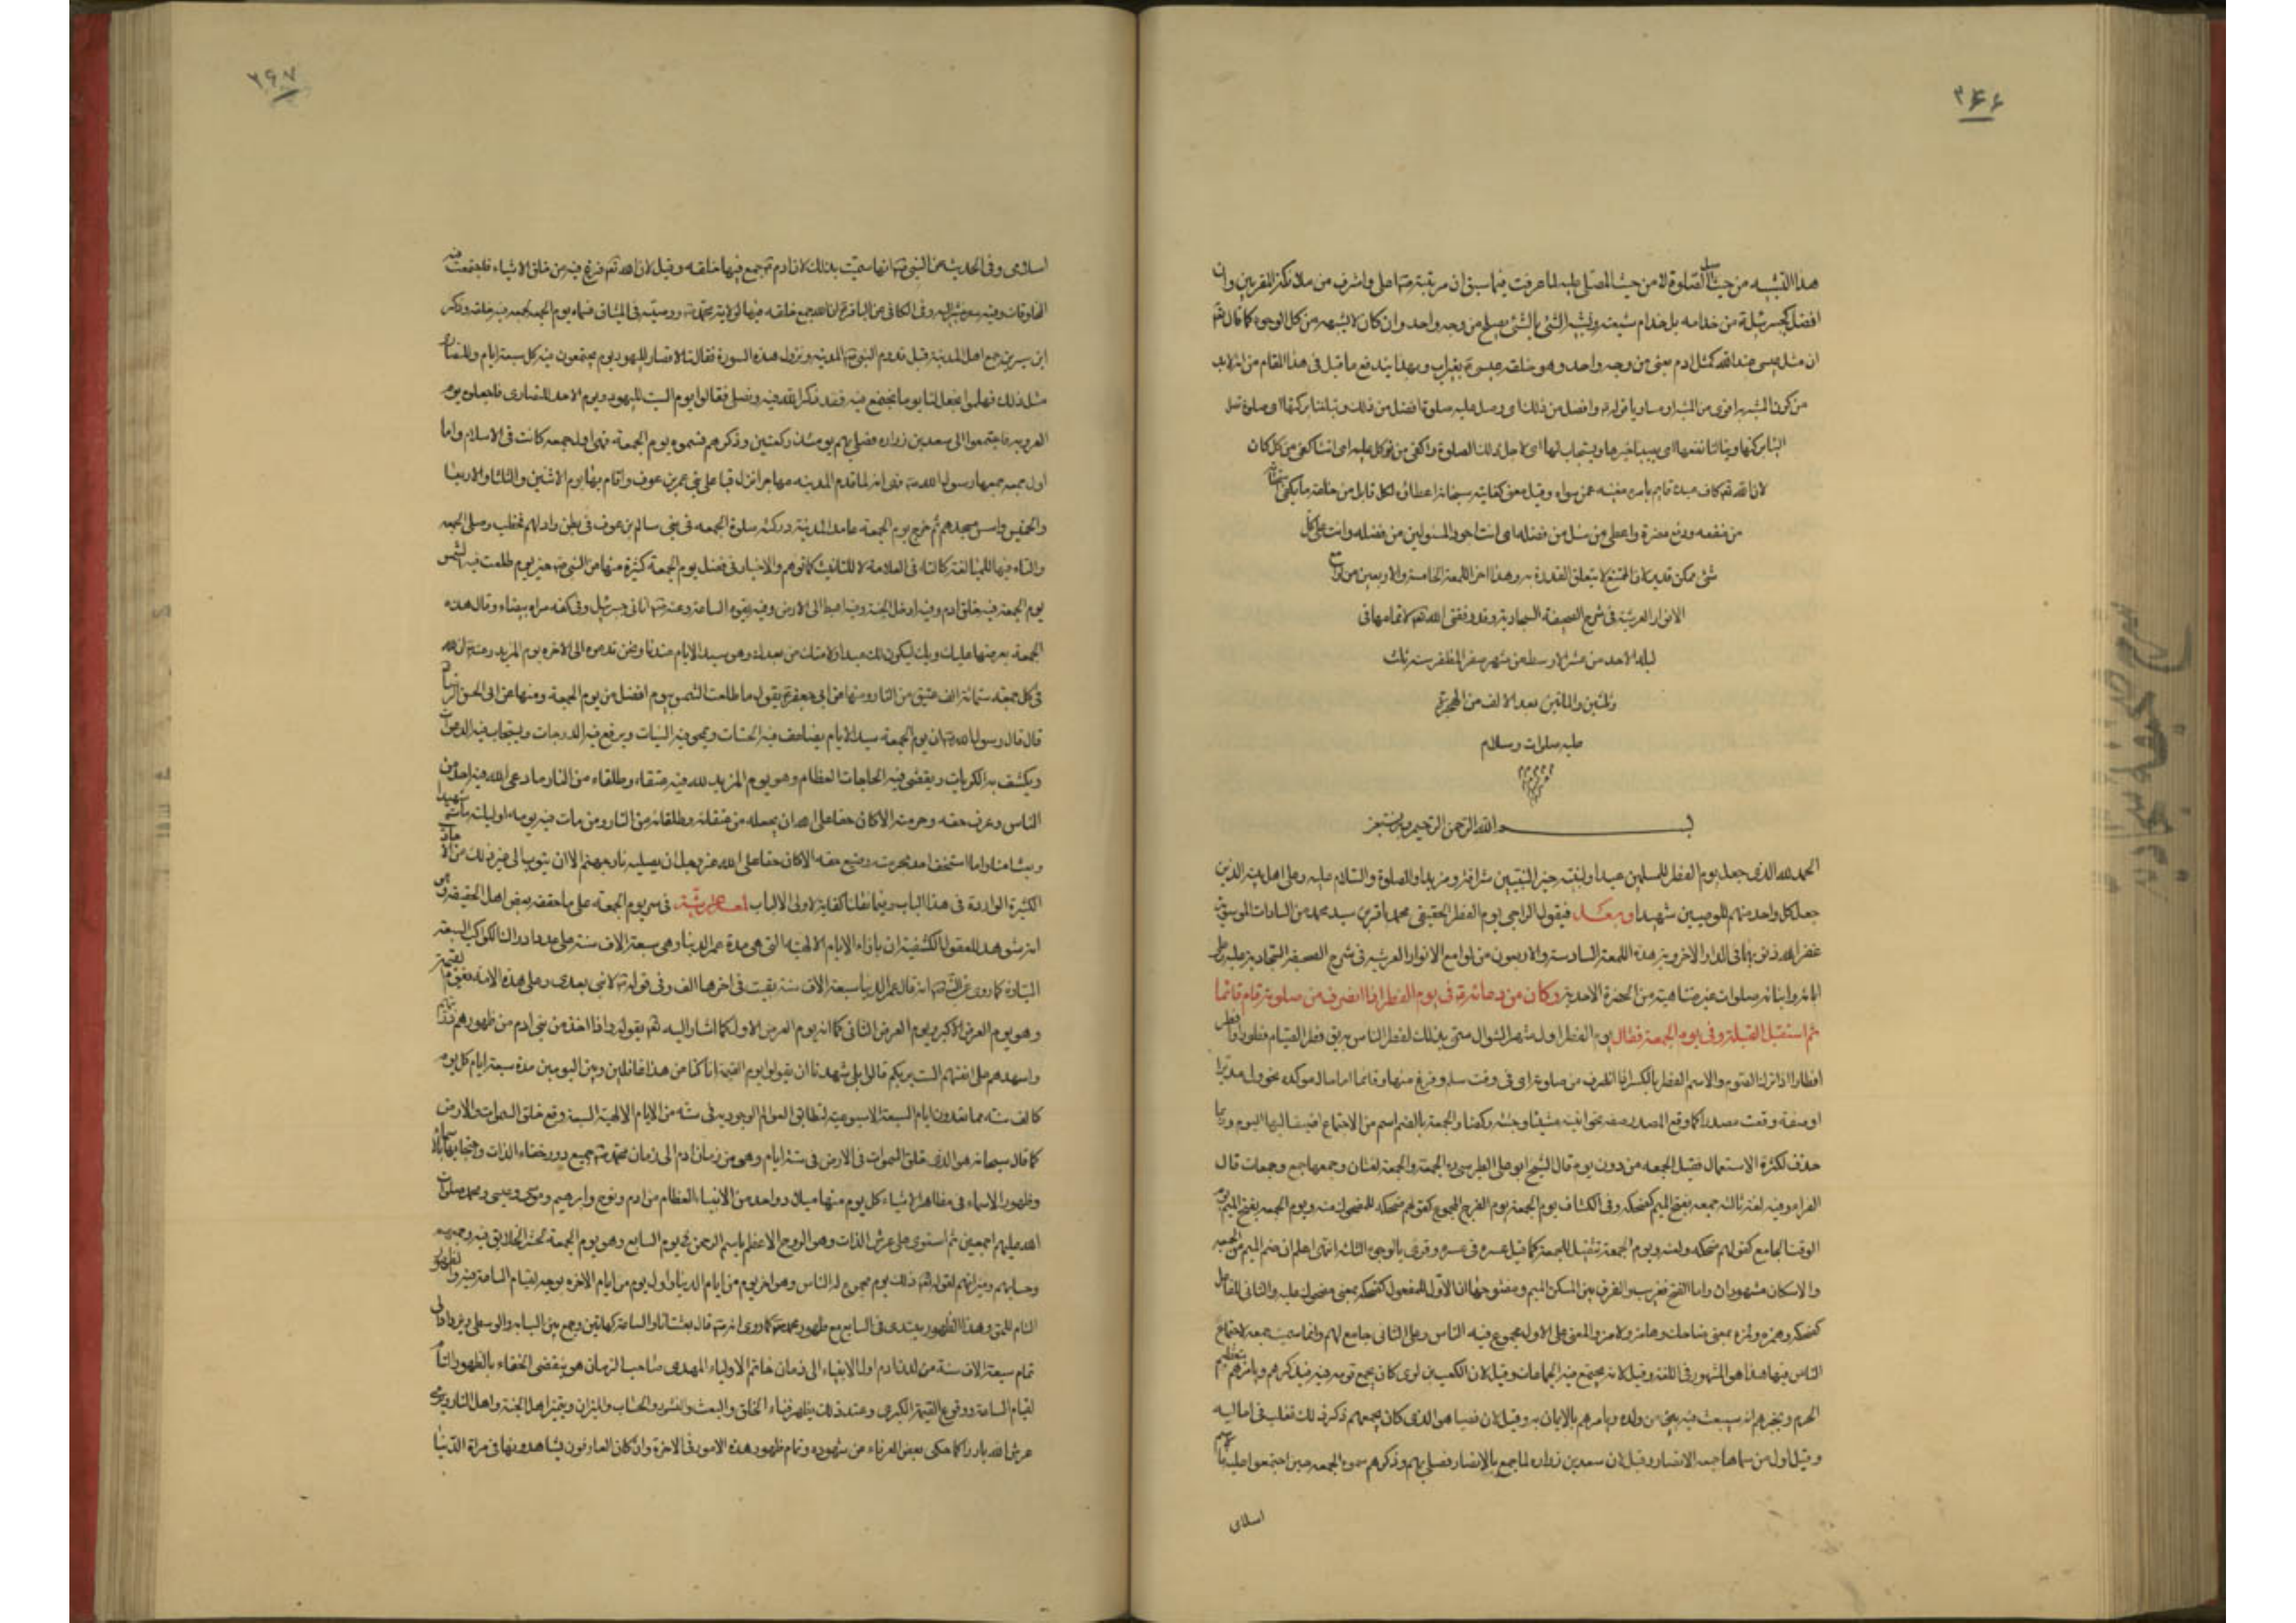 ۳۶۶
هذا التشبيه من حيث اصل الصلوة لا من حيث المصلى عليه لما عرفت فيما سبق ان مرتبته اعلى واشرف من ملائكة المقربين وان
افضل كجبرئيل من خدامه بل خدام شيعته وتشبيه الشئ بالشئ يصح من وجه واحد وان كان لا يشبهه من كل الوجوه كما قال تعالى
ان مثل عيسى عند الله كمثل ادم يعنى من وجه واحد وهو خلقة عيسى بغير اب وبهذا يندفع ما قيل فى هذا المقام من انه لابد
من كون المشبه به اقوى من المشبه او مساويا وافضل من ذلك اى وصل عليه صلوة افضل من ذلك وتبلغنا بركتها اى صلوة تصل
الينا بركتها وينالنا نفعها اى يصيبنا خيرها ويستجاب لها اى لاجل تلك الصلوة واكفى من توكل عليه اى انت اكفى من كل كان
لان الله تعالى كاف عبده قايم بامره مغنيه عمن سواه وقيل معنى كفايته سبحانه اعطاؤه لكل قابل من خلقه ما يكفى
من منفعه ودفع مضرة واعطى من سئل من فضله اى انت اجود المسئولين من فضله وانت على كل
شئ ممكن قدير لان الممتنع لا يتعلق القدرة به وهذا اخر اللمعة الخامسة والاربعين من لوامع
الانوار العرشية فى شرح الصحيفة السجادية وقد وفقنى الله تعالى لاتمامها فى
ليلة الاحد من عشر الاوسط من شهر صفر المظفر سنه ثلث
وثلثين والمائتين بعد الالف من الهجرة
عليه صلوات وسلام
بسم الله الرحمن الرحيم وبه نستعين
الحمد لله الذى جعل يوم الفطر للمسلمين عيدا ولنبيه خير النبيين شرافة ومزيدا والصلوة والسلام عليه وعلى اهل بيته الذين
جعل كل واحد منهم للوصيين شهيدا وبعد فيقول الراجى يوم الفطر الحقيقى محمد باقر بن سيد محمد من السادات الموسويه
غفر الله ذنوبهما فى الدار الاخروية هذه اللمعة السادسة والاربعون من لوامع الانوار العرشيه فى شرح الصحيفة السجادية عليه وعلى
ابائه وابنائه صلوات غير متناهية من الحضرة الاحدية وكان من دعائه فى يوم الفطر اذا انصرف من صلوته قام قائما
ثم استقبل القبلة وفى يوم الجمعة فقال يوم الفطر اول شهر الشوال سمى بذلك لفطر الناس فيه فطر الصيام
افطارا اذا ترك الصوم والاسم الفطر بالكسر اذا انصرف من صلوته اى فى وقت سلم وفرغ منها وقائما اما حال مؤكدة نحو ولى مدبرا
او صفة وقعت مصدرا كما وقع المصدر صفه نحو اتيته مشيا وجئته ركضا والجمعة بالضم اسم من الاجتماع اضيف اليها اليوم وربما
حذف لكثرة الاستعمال فقيل الجمعه من دون يوم قال الشيخ ابو على الطبرسى ره الجمعة والجمعة لغتان وجمعها جمع وجمعات قال
الفراء وفيه لغة ثالثه جمعه بفتح الميم كضحكه وفى الكشاف يوم الجمعة يوم الفوج المجموع كقولهم ضحكه للمضحوك منه ويوم الجمعه بفتح الميم يوم
الوقت الجامع كقولهم ضحكه ولعنه ويوم الجمعة تثقيل للجمعة كما قيل عسره فى عسره وقرئ بالوجوه الثلاثه انتهى اعلم ان ضم الميم من الجمعه
والاسكان مشهوران واما الفتح فغريب والفرق بين المسكن الميم ومفتوحها ان الاول للمفعول كضحكه بمعنى مضحوك عليه والثانى للفاعل
كضحكه وهمزه ولمزه بمعنى ضاحك وهامز ولامز والمعنى على الاول مجموع فيه الناس وعلى الثانى جامع لهم وانما سميت جمعه لاجتماع
الناس فيها هذا هو المشهور فى اللغة وقيل لانه يجتمع فيه الجماعات وقيل لان الكعب بن لوى كان يجمع قومه فيه فيذكرهم ويامرهم بتعظيم
الحرم ويخبرهم انه سيبعث فيه نبى من ولده ويامرهم بالايمان به وقيل لان قصيا هو الذى كان يجمعهم ذكر ذلك تغلب فى اماليه
وقيل اول من سماها جمعه الانصار وقيل لان سعد بن زراره لما جمع بالانصار فصلى بهم وذكرهم سموه الجمعه حين اجتمعوا اليه
اسلامى
۳۶۷
اسلامى وفى الحديث عن النبى انها سميت بذلك لان ادم جمع فيها خلقه وقيل لان الله تعالى فرغ فيه من خلق الاشياء فاجتمعت فيه
المخلوقات وفى الكافى عن الباقر ان الله جمع خلقه فيها لولاية محمد ووصيه فى الميثاق فسماه يوم الجمعه لجمعه فيه خلقه وذكر
ابن سيرين جمع اهل المدينة قبل قدوم النبى المدينه ونزول هذه السورة فقالت الانصار لليهود يوم يجتمعون فيه كل سبعة ايام وللنصارى
مثل ذلك فهلموا نجعل لنا يوما نجتمع فيه فنذكر الله فيه ونصلى فقالوا يوم السبت لليهود ويوم الاحد للنصارى فاجعلوه يوم
العروبه فاجتمعوا الى سعد بن زراره فصلى بهم يومئذ ركعتين وذكرهم فسموه يوم الجمعة فهى اول جمعه كانت فى الاسلام واما
اول جمعه جمعها رسول الله فهو انه لما قدم المدينه مهاجرا نزل قبا على بنى عمرو بن عوف واقام بها يوم الاثنين والثلثا والاربعا
والخميس واسس مسجدهم ثم خرج يوم الجمعة عامدا المدينة فادركته صلوة الجمعه فى بنى سالم بن عوف فى بطن واد لهم فخطب وصلى الجمعه
والتاء فيها للمبالغة كالتاء فى العلامة لا للتانيث كما توهم والاخبار فى فضل يوم الجمعة كثيرة منها عن النبى خير يوم طلعت فيه الشمس
يوم الجمعة فيه خلق ادم وفيه ادخل الجنة وفيه اهبط الى الارض وفيه تقوم الساعة وعنه اتانى جبرئيل وفى كفه مراه بيضاء وقال هذه
الجمعة يعرضها عليك ربك ليكون لك عيدا ولامتك من بعدك وهو سيد الايام عندنا ونحن ندعوه الى الاخره يوم المزيد وعنه ان لله
فى كل جمعة ستمائة الف عتيق من النار ومنها عن ابى جعفر يقول ما طلعت الشمس بيوم افضل من يوم الجمعة ومنها عن ابى الحسن الرضا
قال قال رسول الله ان يوم الجمعة سيد الايام يضاعف فيه الحسنات ويمحى فيه السيئات ويرفع فيه الدرجات ويستجاب فيه الدعوات
ويكشف به الكربات ويقضى فيه الحاجات العظام وهو يوم المزيد لله فيه عتقاء وطلقاء من النار ما دعى الله فيه احد من
الناس وعرف حقه وحرمته الا كان حقا على الله ان يجعله من عتقائه وطلقائه من النار ومن مات فيه يومه او ليلته مات شهيدا
وبعث امنا وما استخف احد بحرمته وضيع حقه الا كان حقا على الله عز وجل ان يصليه نار جهنم الا ان يتوب الى غير ذلك من
الكثيرة الواردة فى هذا الباب وفيما نقلنا كفاية لاولى الالباب فى سر يوم الجمعة على ما حققه بعض اهل الحقيقة وهى
بازاء الايام الالهية التى هى مدة عمر الدنيا وهى سبعة الاف سنة على عدد ادوار الكواكب السبعة
السيارة كما روى عن النبى انه قال عمر الدنيا سبعة الاف سنة بعثت فى اخرها الف وفى قوله لا نبى بعدى وعلى هذه الامة
وهو يوم العرض الاكبر يوم العرض الثانى كما انه يوم العرض الاول كما اشار اليه تعالى بقوله واذ اخذ من بنى ادم من ظهورهم
واشهدهم على انفسهم الست بربكم قالوا بلى شهدنا ان يقولوا يوم القيمة انا كنا عن هذا غافلين وبين اليومين مدة سبعة ايام كل يوم
كالف سنه مما تعدون ايام السبعة الاسبوعية لتطابق العوالم الوجوديه فى ستة من الايام الالهية السبعة وقع خلق السموات والارض
كما قال سبحانه هو الذى خلق السموات والارض فى ستة ايام وهو من زمان ادم الى زمان محمد جميع دور خفاء الذات
وظهور الاسماء فى مظاهر الاشياء كل يوم منها ميلاد واحد من الانبياء العظام من ادم ونوح وابرهيم وموسى وعيسى ومحمد صلوات
الله عليهم اجمعين ثم استوى على عرش الذات وهو الروح الاعظم باسم الرحمن فى يوم السابع وهو يوم الجمعة لحشر الخلايق فيه وجمعهم
وحسابهم وميزانهم لقوله تعالى ذلك يوم مجموع له الناس وهو اخر يوم من ايام الدنيا واول يوم من ايام الاخره يوجد لقيام الساعة فيه
التام للحق وهذا الظهور يبتدى فى السابع مع ظهور محمد كما روى انه قال بعثت انا والساعة كهاتين وجمع بين السبابه والوسطى
تمام سبعة الاف سنة من لدن ادم اول الانبياء الى زمان خاتم الاولياء المهدى صاحب الزمان هو ينقضى الخفاء بالظهور التام
لقيام الساعة ووقوع القيمة الكبرى وعند ذلك يظهر فناء الخلق والبعث والنشور والحساب والميزان ويتميز اهل الجنة واهل النار ويرى
عرش الله بارزا كما حكى بعض العرفاء عن شهوده وتمام ظهور هذه الامور فى الاخرة وان كان العارفون يشاهدونها فى مراة الدنيا